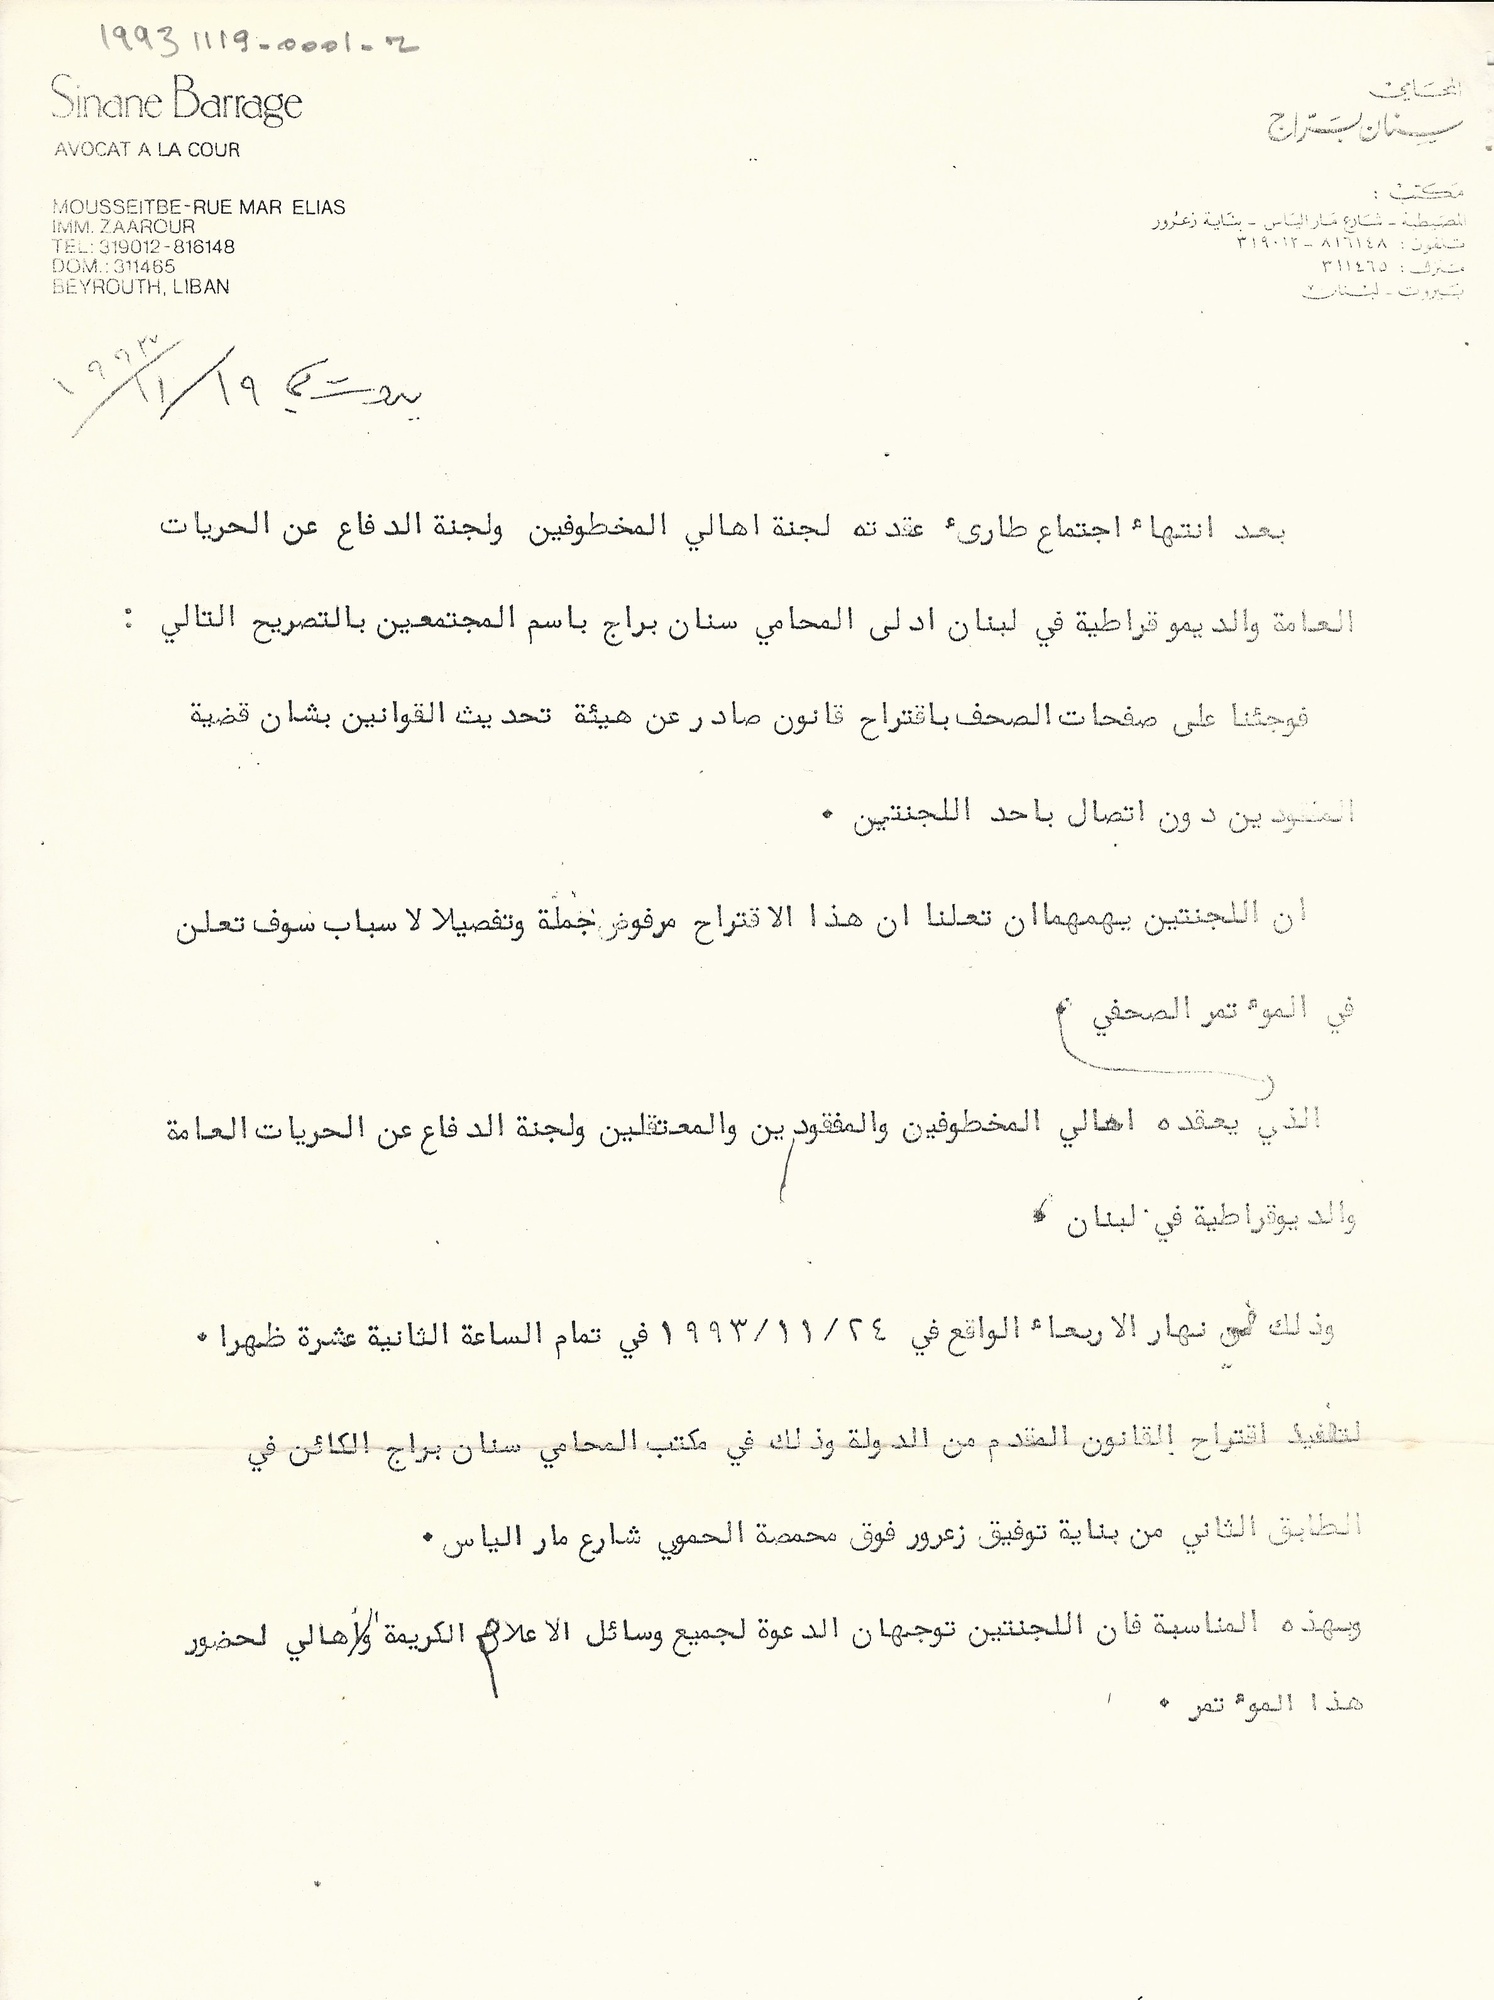 19931119-0001-2
Sinane Barrage
AVOCAT A LA COUR
MOUSSEITBE-RUE MAR ELIAS
IMM. ZAAROUR
TEL: 319012-816148
DOM.: 311465
BEYROUTH, LIBAN
المحامي
سنان براج
مكتب :
المصيطبة - شارع مار الياس - بناية زعرور
تلفون : ٨١٦١٤٨ - ٣١٩٠١٢
منزل : ٣١١٤٦٥
بيروت - لبنان
بيروت في ١٩/١١/١٩٩٣
بعد انتهاء اجتماع طارىء عقدته لجنة اهالي المخطوفين ولجنة الدفاع عن الحريات
العامة والديموقراطية في لبنان ادلى المحامي سنان براج باسم المجتمعين بالتصريح التالي :
فوجئنا على صفحات الصحف باقتراح قانون صادر عن هيئة تحديث القوانين بشان قضية
المفقودين دون اتصال باحد اللجنتين .
ان اللجنتين يهمهما ان تعلنا ان هذا الاقتراح مرفوض جملة وتفصيلا لاسباب سوف تعلن
في الموءتمر الصحفي
الذي يعقده اهالي المخطوفين والمفقودين والمعتقلين ولجنة الدفاع عن الحريات العامة
والديوقراطية في لبنان
وذلك نهار الاربعاء الواقع في ٢٤/١١/١٩٩٣ في تمام الساعة الثانية عشرة ظهرا .
لتفنيد اقتراح القانون المقدم من الدولة وذلك في مكتب المحامي سنان براج الكائن في
الطابق الثاني من بناية توفيق زعرور فوق محمصة الحموي شارع مار الياس .
وبهذه المناسبة فان اللجنتين توجهان الدعوة لجميع وسائل الاعلام الكريمة والأهالي لحضور
هذا الموءتمر .